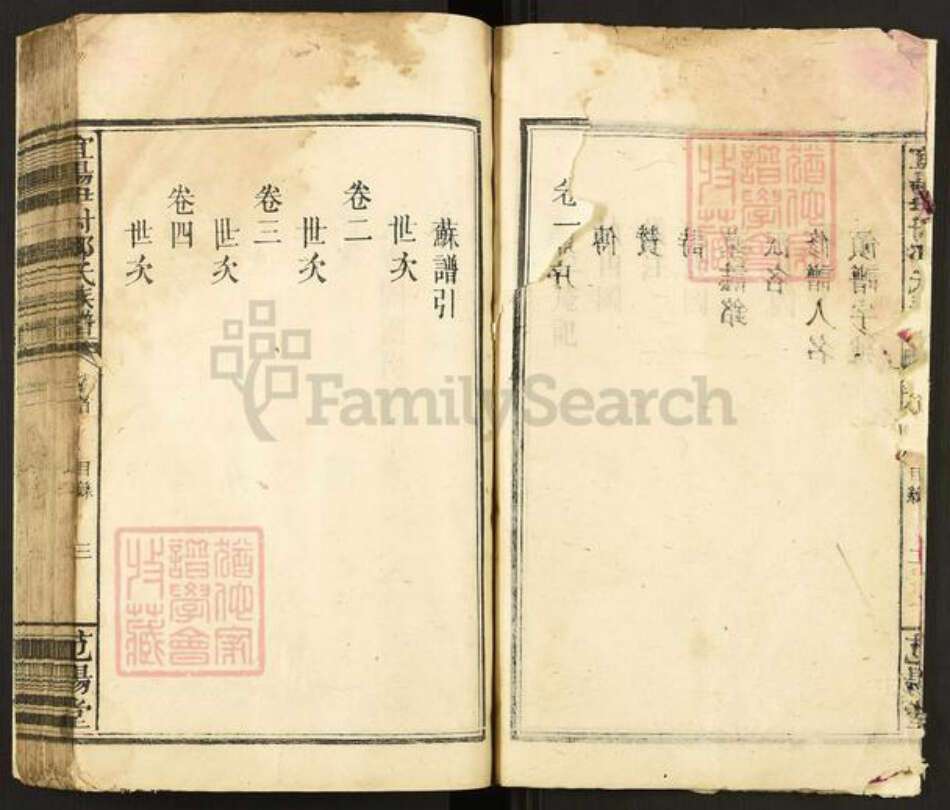 領譜字號
修譜人名
派名
墓誌銘
詩
贊
傳
卷一
序
目錄
猶他家譜學會收藏
蘇譜引
世次
卷二
世次
卷三
世次
卷四
世次
氏族譜
目錄
三
范陽堂
猶他家譜學會收藏
FamilySearch